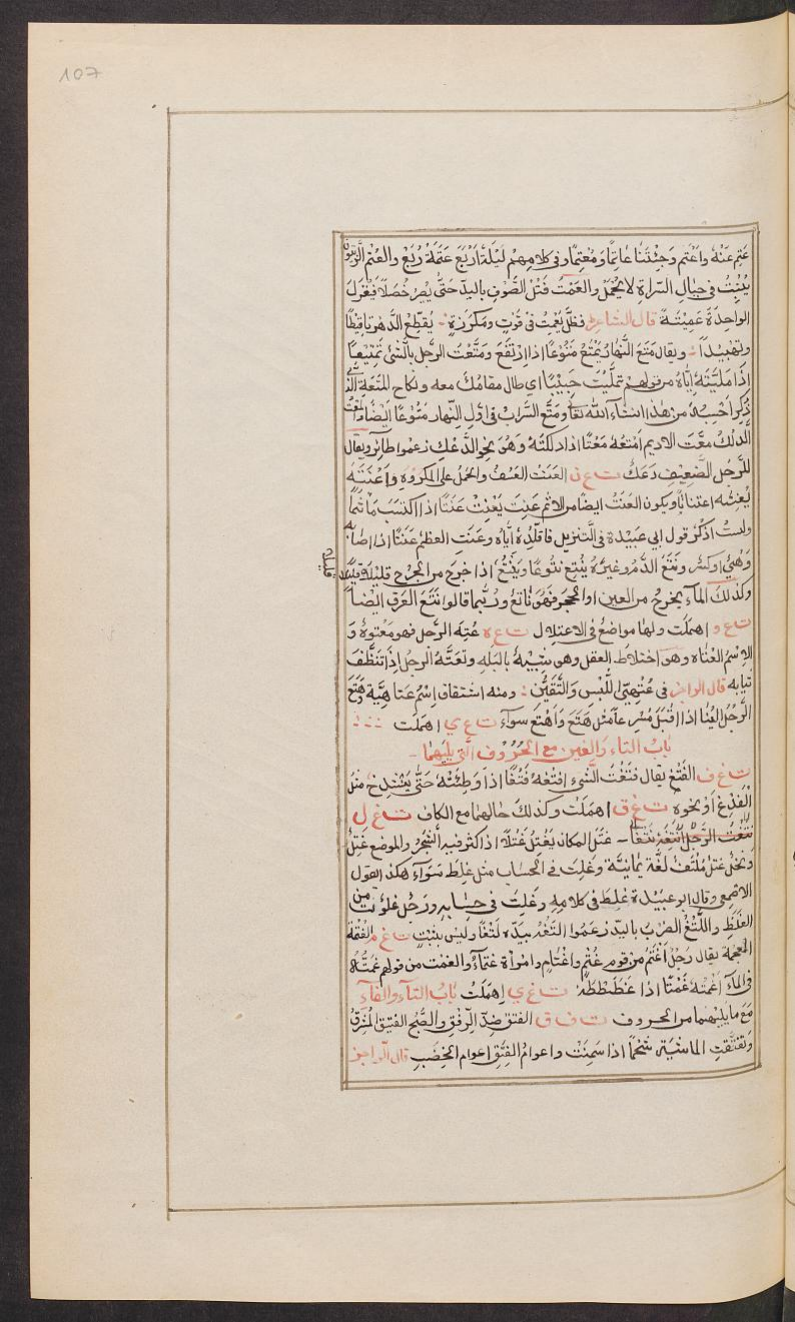 107
عَتِم عَنْهُ واَعْتَم وَجِئْتَنَا عَاتِمًا وَمُعْتِمًا وفى كلامِهِمْ لَيْلَةُ اَرْبَعٍ عَتَمَةُ رُبَعٍ والعُتْم الزَّيْتُون
يَنْبُتُ فى جبال السَّراةِ لا يَحْمِلُ والعَمْتُ فَتْلُ الصُّوفِ باليدِ حَتّى يصِرَ خُصَلًا فيُغْزَلَ
الواحِدَةُ عَمِيْتَةٌ قال الشاعر فظلَّ يَعْمِتُ فى قَوْطٍ ومَكْرَزَةٍ يُقَطِّعُ الدَّهرَ تاقِيطًا
وتهبيدًا ويقال مَتَعَ النَّهارُ يَمْتَعُ مُتُوْعًا اذا اِرْتَفَعَ وَمَتَّعْتُ الرَّجل بالشّئ تَمْتِيْعًا
اِذَا مَلَّيْتَهُ اِيّاهُ من قولهم تَملَّيْتَ حَبِيْبًا اى طال مقامُك معه ونكاح المُتْعَةِ الَّذى
ذُكِرَ اَحْسِبُهُ من هٰذا انشاء اللهُ تعا ومَتَع السَّرابُ فى اوّل النّهار مُتُوْعًا اَيْضًا والمَعْتُ
الدلكُ معَتُّ الاديم اَمْعَتُهُ مَعْتًا اذا دلكتَهُ وَهُوَ نحو الدَّعْكِ زعموا طائر ويقال
للرَّجُل الضَّعِيفِ دُعَكٌ ت ع ن العَنَتُ العَسْفُ والحَمْلُ على المَكرُوهِ واَعْنَتَهُ
يُعْنِتُه اعناتًا ويكون العَنَتُ ايضًا من الاثم عَنِتَ يَعْنَتُ عَنَتًا اذا اكتسَبَ مَأْثَمًا
ولستُ اَذكُرُ قول ابى عَبِيْدة فى التَّنزيل فاقَلِّدُهُ اِيّاه وعَنَتِ العظمُ عَنَتًا اذا اصَابَهُ
وَهْىٌ اوكسر ونَتَعَ الدَّمُ وغيرُهُ يَنْتِع نُتُوعًا ويَنْتُعُ اذا خرجَ من الجُرْحِ قليلةً قليلة
قليلا
وكذلك المآءُ يخرجُ من العينِ او الحجرِ فَهُوَ ناتعٌ ورُبَّما قالوا نَتَعَ العَرَقُ ايضًا
ت ع و اهملت ولها مواضعُ فى الاعتلال ت ع ه عُتِهَ الرَّجل فهو معتوهٌ وَ
الاِسْمُ العُتاه وهو اختلاطُ العقلِ وهى شبِيْهةٌ بالبَلَهِ وتَعَتَّهَ الرجلُ اِذا تنظَّفَ
ثيابه قال الراجز فى عُتْهِىِّ اللُّبْسِ وَالتَّقَيُّنِ ومنه اشتقاق اِسْمُ عَتاهِيَّة وهَتَعَ
الرَّجُلُ الينا اذا اقْبَلَ مُسْرِعًا مثل هَتَعَ وَاَهْتَعَ سوآءٌ ت ع ي اهملت
بَابُ التاء وَالغين مع الحُرُوفِ الَّتى يليهما
ت غ ف الفَتْغُ يقال فَتَغْتُ الشَّىءَ اَفْتَغُهُ فَتْغًا اذا وَطِئْتَهُ حَتّى يَنْشَدِخ مثل
الْفَدْغِ اَوْ نحوهِ ت غ ق اهمَلَت وكذلكَ حالهما مع الكاف ت غ ل
نتَغْتُ الرَّجُلَ انْتَغُهُ نَتْغًا غَتَل المكان يَغْتَلُ غَتَلًا اذا كثرَ فيه الشَّجَرُ والموضعُ غَتِلٌ
ونخلٌ غَتِلٌ مُلْتَفٌّ لغَةٌ يَمانِيَّةٌ وغَلِتَ فى الحساب مثل غَلِطَ سَوَآء هكذا القول
الاصمعى وقال ابو عَبِيْدة غَلِطَ فى كلامِهِ وغَلِتَ فى حِسَابِهِ ورَجُل غَلُوت من
الغَلَطِ واللَّتْغُ الضربُ باليد زعَمُوا لتَغَهُ بيَدِه لَتْغًا وليس بثبتٍ ت غ م الغُتْمَة
العجمة يقال رَجُلٌ اَغْتَمُ من قومٍ غُتْمٍ واَغْتَامٍ وامرأة غَتمآءُ والغَمْت من قولهم غَمَتُّهُ
فى المآءِ اَغْمِتُهُ غَمْتًا اذا غَطَّطْتَهُ ت غ ي اِهمَلَتْ بَابُ التآءِ والفَآءِ
مَعَ ما يليهما من الحروف ت ف ق الفَتْقُ ضِدُّ الرَّتْقِ والصُّبح الفتيق المُشرِقُ
وَتفتَّقتِ الماشية شَحْمًا اذا سَمِنَتْ واعوامُ الفَتَقِ اعوام الخِصْبِ قال الراجز